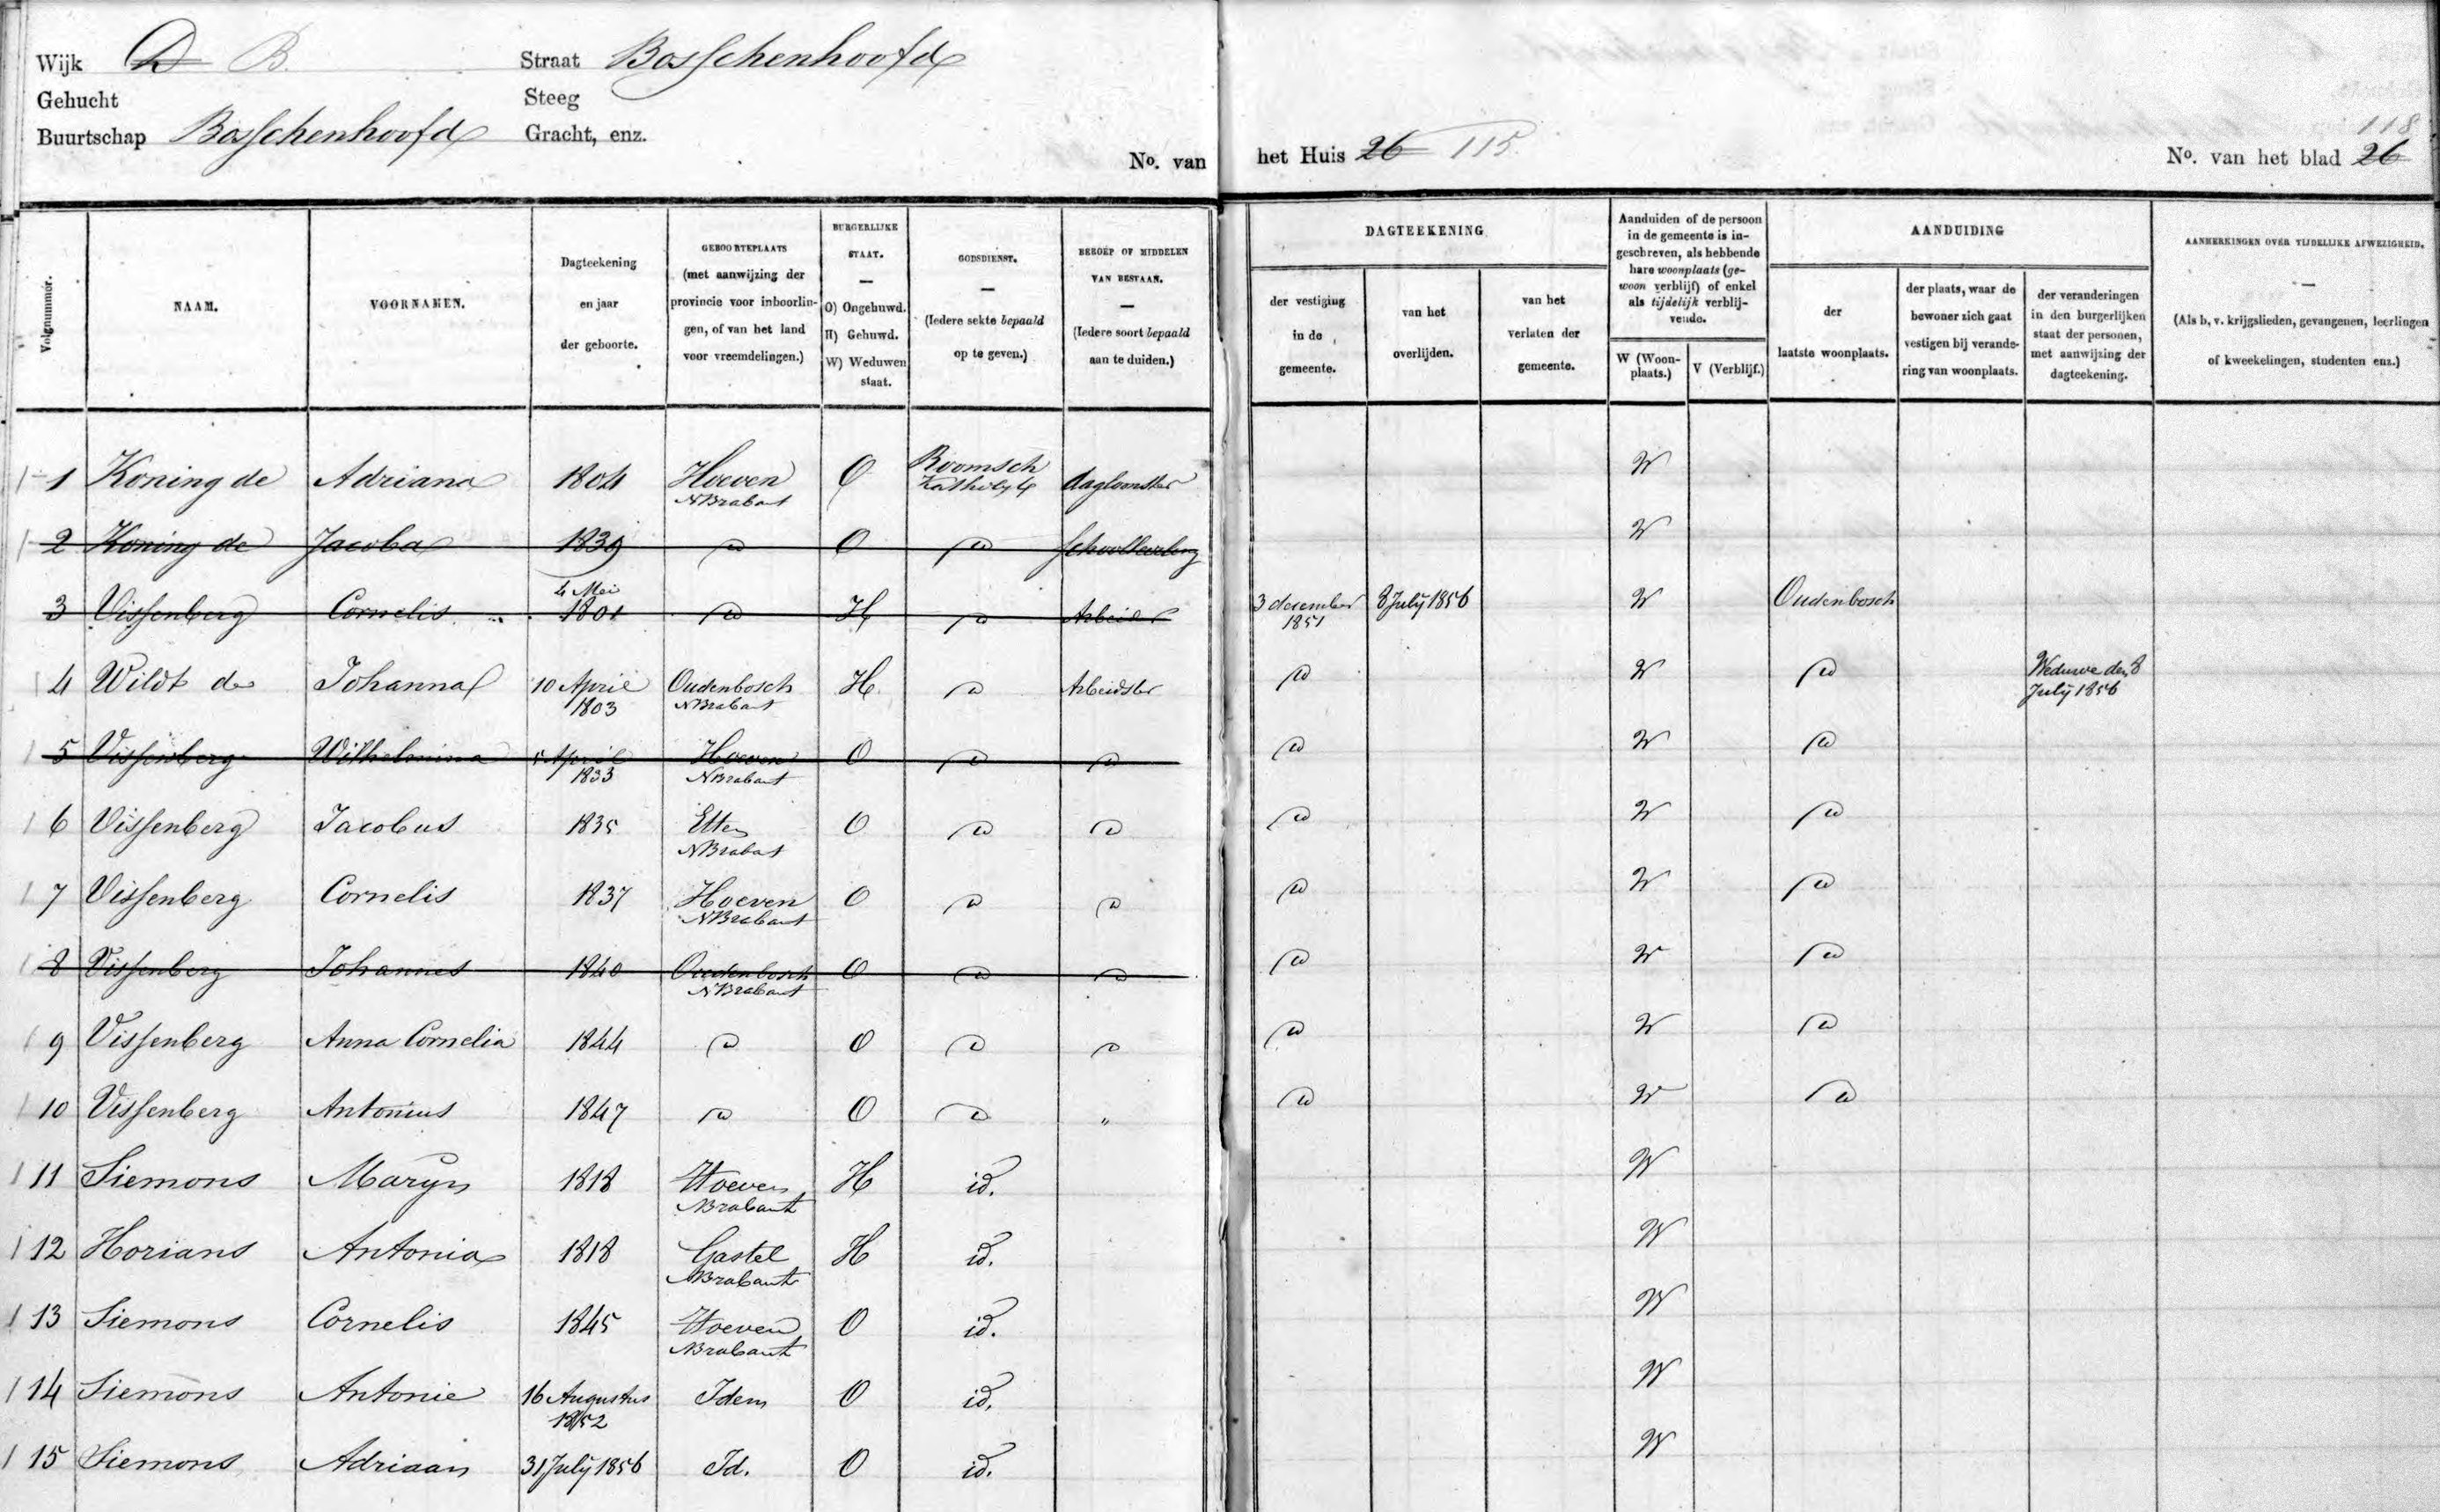 Wijk D B. Straat Bosschenhoofd
Gehucht Steeg
Buurtschap Bosschenhoofd Gracht, enz.
No. van het Huis 26 115. No. van het blad 26 118
Volgnummer.
NAAM.
VOORNAMEN.
Dagteekening
en jaar
der geboorte.
GEBOORTEPLAATS
(met aanwijzing der
provincie voor inboorlin-
gen, of van het land
voor vreemdelingen.)
BURGERLIJKE
STAAT.
O) Ongehuwd.
H) Gehuwd.
W) Weduwen
staat.
GODSDIENST.
(Iedere sekte bepaald
op te geven.)
BEROEP OF MIDDELEN
VAN BESTAAN.
(Iedere soort bepaald
aan te duiden.)
DAGTEEKENING
der vestiging
in de
gemeente.
van het
overlijden.
van het
verlaten der
gemeente.
Aanduiden of de persoon
in de gemeente is in-
geschreven, als hebbende
hare woonplaats (ge-
woon verblijf) of enkel
als tijdelijk verblij-
vende.
W (Woon-
plaats.)
V (Verblijf.)
AANDUIDING
der
laatste woonplaats.
der plaats, waar de
bewoner zich gaat
vestigen bij verande-
ring van woonplaats.
der veranderingen
in den burgerlijken
staat der personen,
met aanwijzing der
dagteekening.
AANMERKINGEN OVER TIJDELIJKE AFWEZIGHEID.
(Als b, v. krijgslieden, gevangenen, leerlingen
of kweekelingen, studenten enz.)
1 Koning de Adriana 1804 Hoeven NBrabant O Roomsch Katholyk dagloonster W
2 Koning de Jacoba 1839 O Schoolleerling W
3 Vissenberg Cornelis 4 Mei 1801 H Arbeider 3 december 1851 8 July 1856 W Oudenbosch
4 Wildt de Johanna 10 April 1803 Oudenbosch NBrabant H. Arbeidster W Weduwe den 8 July 1856
5 Vissenberg Wilhelmina 5 April 1833 Hoeven NBrabant O W
6 Vissenberg Jacobus 1835 Etten NBrabant O W
7 Vissenberg Cornelis 1837 Hoeven NBrabant O W
8 Vissenberg Johannes 1840 Oudenbosch NBrabant O W
9 Vissenberg Anna Cornelia 1844 O W
10 Vissenberg Antonius 1847 O " W
11 Siemons Maryn 1818 Hoeven NBrabant H id. W
12 Horians Antonia 1818 Gastel NBrabant H id. W
13 Siemons Cornelis 1845 Hoeven NBrabant O id. W
14 Siemons Antonie 16 Augustus 1852 Idem O id. W
15 Siemons Adriaan 31 July 1856 Id. O id. W